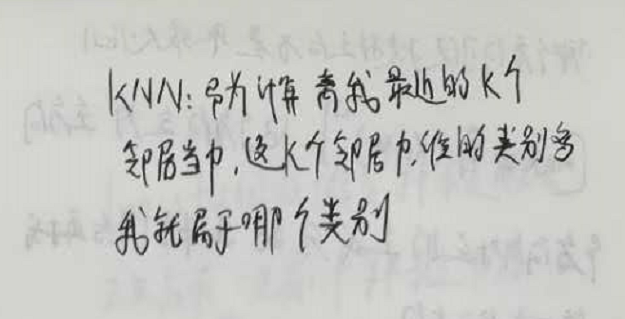 KNN: 即为计算离我最近的K个
邻居当中,这K个邻居中,谁的类别多
我就属于哪个类别